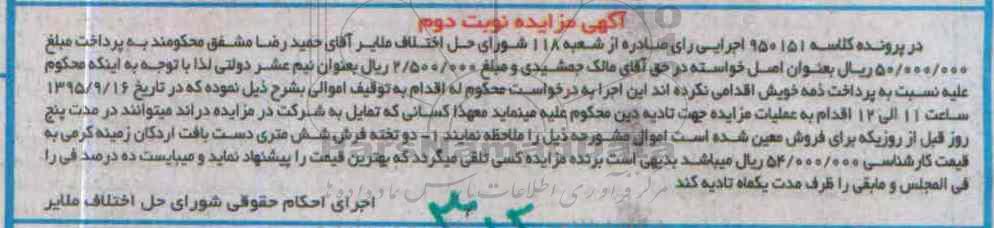 آگهی مزایده نوبت دوم
در پرونده کلاسه ۹۵۰۱۵۱ اجرایی رای صادره از شعبه ۱۱۸ شورای حل اختلاف ملایر آقای حمید رضا مشفق محکومند به پرداخت مبلغ
۵۰/۰۰۰/۰۰۰ ریال بعنوان اصل خواسته در حق آقای مالک جمشیدی و مبلغ ۲/۵۰۰/۰۰۰ ریال بعنوان نیم عشر دولتی لذا با توجه به اینکه محکوم
علیه نسبت به پرداخت ذمه خویش اقدامی نکرده اند این اجرا به درخواست محکوم له اقدام به توقیف اموالی بشرح ذیل نموده که در تاریخ ۱۳۹۵/۹/۱۶
ساعت ۱۱ الی ۱۲ اقدام به عملیات مزایده جهت تادیه دین محکوم علیه مینماید معهذا کسانی که تمایل به شرکت در مزایده دراند میتوانند در مدت پنج
روز قبل از روزیکه برای فروش معین شده است اموال مشورحه ذیل را ملاحظه نمایند ۱- دو تخته فرش شش متری دست بافت اردکان زمینه کرمی به
قیمت کارشناسی ۵۴/۰۰۰/۰۰۰ ریال میباشد بدیهی است برنده مزایده کسی تلقی میگردد که بهترین قیمت را پیشنهاد نماید و میبایست ده درصد فی را
فی المجلس و مابقی را ظرف مدت یکماه تادیه کند
اجرای احکام حقوقی شورای حل اختلاف ملایر
ParsNamadData
مرکز فرآوری اطلاعات پارس نماد داده ها